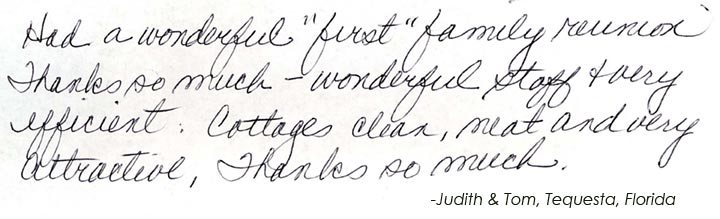 Had a wonderful "first" family reunion
Thanks so much – wonderful staff & very
efficient. Cottages clean, neat and very
attractive, Thanks so much.
-Judith & Tom, Tequesta, Florida